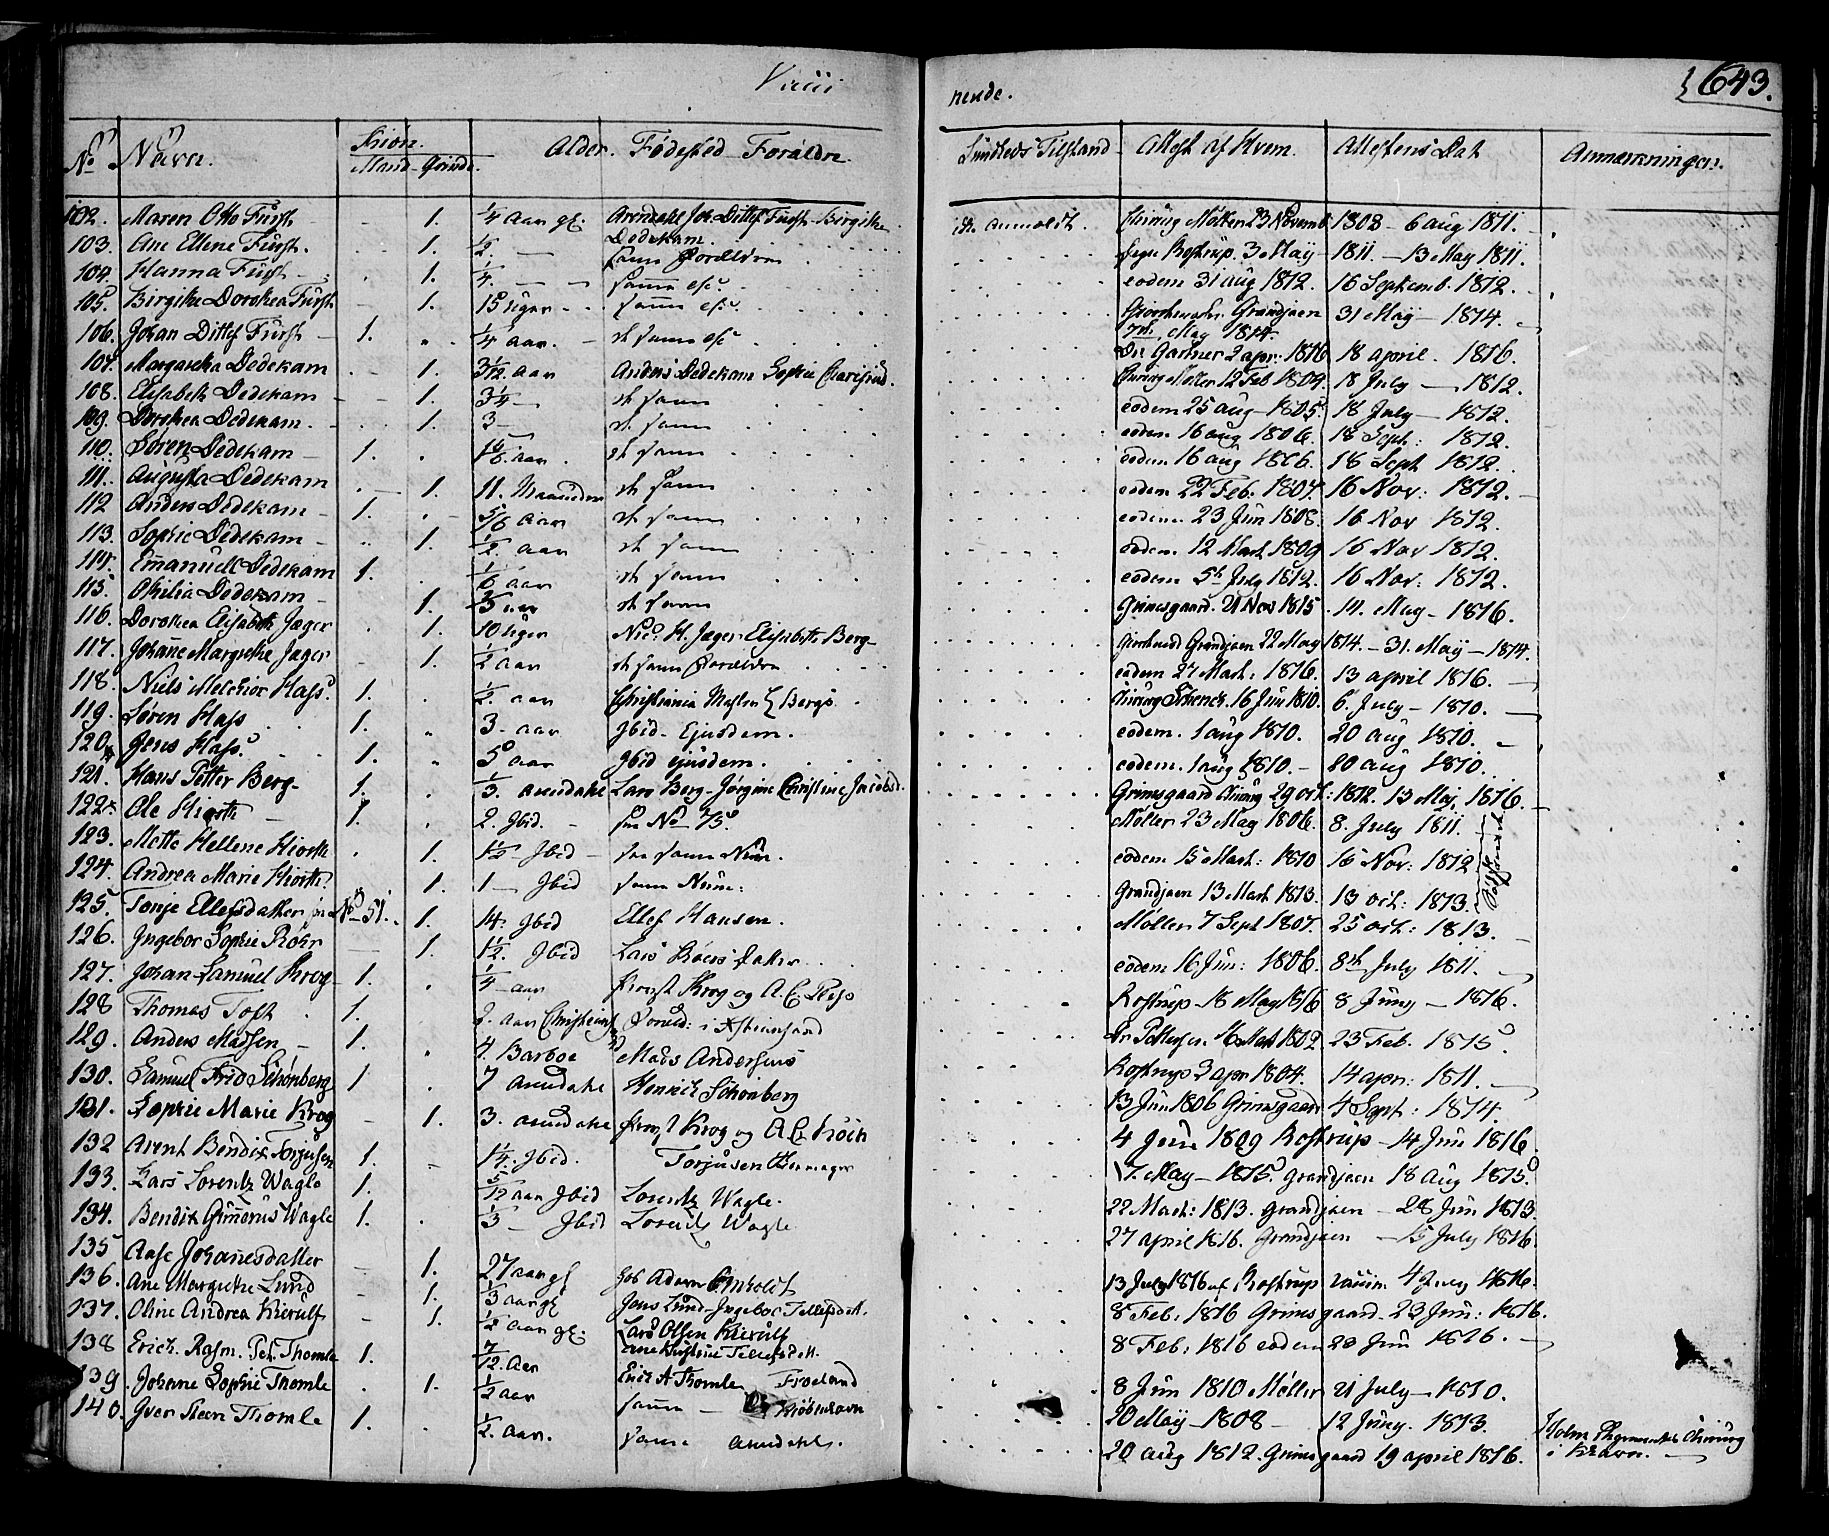 Vacci
nende.
643.
No Navn. Kiön. Mand- Qvinde. Alder. Fødested Forældre
Sundheds Tilstand Attest af Hvem. Attestens Dat Anmærkninger.
102. Maren Otto Fürst - 1. 1/4 Aar gl. Arendahl Joh. Ditlef Fürst - Birgithe Dedekam.
103. Ane Ellene Fürst. 1. 1/2. — samme Foreldre
104. Hanna Fürst - 1. 1/4. — samme
105. Birgithe Dorothea Fürst - 1. 15 Uger - samme
106. Johan Ditlef Fürst - 1. 1/4 aar. - samme
107. Margaretha Dedekam 1. 3/12. aar Anders Dedekam Sophie
108. Elisabeth Dedekam 1. 3 1/4 - samme
109. Dorothea Dedekam. 1. 3 - samme
110. Søren Dedekam 1. aar. samme
111. Augusta Dedekam 1. 11. Maaneder samme
112 Anders Dedekam 1. 5/6 aar samme
113. Sophie Dedekam 1. 1/2. aar samme
114. Emanuell Dedekam 1. 1/6 aar samme
115. Othilia Dedekam 1. aar samme
116. Dorothea Elisabeth Jæger 1. 10 Uger Nic. H. Jæger Elisabeth Berg
117. Johanne Margrethe Jæger 1. 1/2 aar samme Forældre
118. Niels Melchior Hass. 1. 1/2. aar Christiania Bergs.
119. Søren Hass 1. 3. aar Jbid. Ejusdem.
120. Jens Hass. 1. 5 aar Jbid ejusdem.
121. Hans Petter Berg 1. 1/3. arendahl Lars Berg - Jørgine Christine Jacobsd.
122. Ole Hiorth 1. 2. Jbid. - No 75.
123. Mette Hellene Hiorth 1. 1 1/2 Jbid - samme Num.
124. Andrea Marie Hiorth. 1. 1 - Jbid samme Num:
125. Tonje Ellefsdatter No 51. 1. 14. Jbid Ellef Hansen.
126. Ingebor Sophie Röhr 1. 1 1/2. Jbid Lars
127. Johan Samuel Krog 1. 1/4 aar Ernst Krog og A. C.
128 Thomas Toft 1. 2. aar Foreld: i Xstiansand
129. Anders Madsen 1. 4. Barboe Mads Andersens
130. Samuel Frid Schønberg 1 7 Arendahl Henrich Schønberg
131. Sophie Marie Krog 1. 3. Arendahl Ernst Krog og A. C.
132 Arent Bendix Torjusen 1. 1 1/4. Jbid. Torjusen
133. Lars Lorentz Wagle 1. 5/12 aar Jbid Lorentz Wagle.
134. Bendix Gunerus Wagle 1. 1/3 - Jbid Lorentz Wagle
135 Aase Johanesdatter 1. 27 aar gl Adam Arnholdt
136. Ane Margrethe Lund 1. 1/3 aar gl Jens Lund Ingebor Tellefsdatt.
137. Oline Andrea Kierulf 1. 1/2 aar gl. Lars Olsen Kierulf
138 Erich. Rasm. Pet. Thomle 1. 7/12. Aar Ane Kirstine Tellefsdatt.
139. Johane Sophie Thomle 1. 1/2 aar Erich A Thomle Froeland
140. Iver Steen Thomle 1. 1/2. aar. samme Kiøbenhavn
samme Arendahl.
Chirurg Møller 23 Novemb 1808 - 6 aug 1811.
Rostrup. 3 May 1811. - 13 May 1811.
eodem 31 aug 1812. 16 Septemb. 1812.
Grandjaen 7de May 1814. 31 May - 1814.
Dr. Gartner 2 apr: 1816 18 april. 1816.
Chirurg Møller 12 Feb 1804. 18 July — 1812.
eodem 25 aug - 1805. 18 July — 1812.
eodem 16 aug 1806. 18 Sept: 1812.
eodem 16 aug 1806. 18 Sept 1812.
eodem 22 Feb. 1807. 16 Nov: 1812.
eodem 23 Jun 1808. 16 Nov 1812.
eodem. 12 Mart 1809 16 Nov 1812.
eodem 5th July 1812. 16 Nov: 1812.
Grimsgaard. 21 Nov 1815. 14. May - 1816.
Grandjaen 22 May 1814. - 31. May - 1814.
eodem 27 Mart: 1816. 13 april 1816.
Chirurg Schenck. 16 Jun 1810. 6. July - 1810.
eodem. 1 aug 1810. 20 aug 1810.
eodem. 1 aug 1810. - 20 aug 1810.
Grimsgaard Chirurg 29 oct: 1812. 13 Maj 1816.
Møller 23 May 1806. 8. July 1811.
eodem 15 Mart: 1810 16 Nov: 1812
Grandjaen 13 Mart 1813. 13 oct: 1813.
Møller 7 Sept 1807. 25 oct: 1813.
eodem 16 Jun: 1806. 8th July 1811.
Rostrup - 18 May 1816 8 Juny - 1816.
Dr Pettersen. 1802. 23 Feb. 1815.
Rostrup 3 apr 1804. 14 apr: 1811.
13 Jun 1806 Grimsgaard 4 Sept: 1814
4 Juni 1809 Rostrup - 14 Jun 1816.
7. May - 1815. Grandjaen 18 Aug 1815.
22 Mart: 1813. Grandjaen - 28 Jun 1813.
27 april 1816. Grandjaen - 15 July 1816
13 July 1816 af Rostrup vaccin. 4 July 1816.
8 Feb. 1816 Grimsgaard. 23 Jun: 1816.
8 Feb: 1816 eodem 23 Jun 1816.
8 Jun 1810 Møller 21 July - 1810.
20 May - 1808 - 12 Juny. 1813. Holm Regiments Chirurg i Khavn.
20 aug 1812. Grimsgaard 19 april 1816.